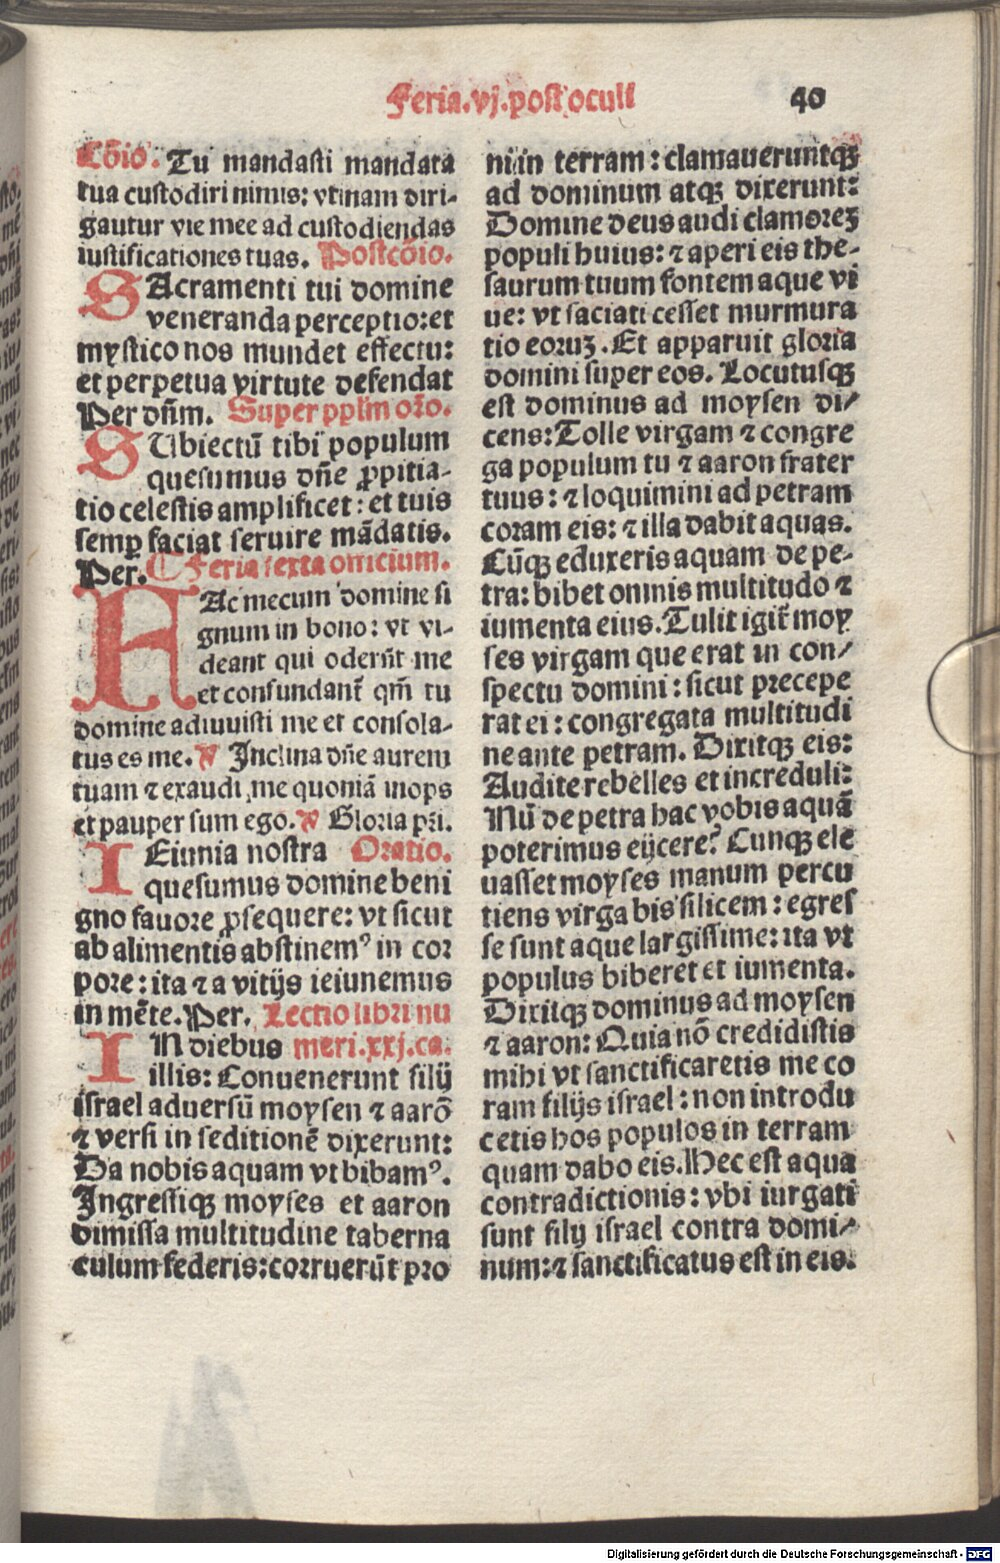 Feria.vj.post oculi
40
Cōio. Tu mandasti mandata
tua custodiri nimis: vtinam diri-
gautur vie mee ad custodiendas
iustificationes tuas. Postcōio.
SAcramenti tui domine
veneranda perceptio: et
mystico nos mundet effectu:
et perpetua virtute defendat
Per dñm. Super pplm orō.
SUbiectū tibi populum
quesumus dñe ꝓpitia-
tio celestis amplificet: et tuis
semꝑ faciat seruire mādatis.
Per. ⸿ Feria sexta officium.
FAc mecum domine si
gnum in bono: vt vi-
deant qui oderūt me
et confundant̄ qm̄ tu
domine adiuuisti me et consola-
tus es me. ℣ Inclina dñe aurem
tuam ⁊ exaudi me quoniā inops
et pauper sum ego. ℣ Gloria pr̄i.
IEiunia nostra Oratio.
quesumus domine beni
gno fauore ꝓsequere: vt sicut
ab alimentis abstinemꝰ in cor
pore: ita ⁊ a vitijs ieiunemus
in mēte. Per. Lectio libri nu
IN diebus meri.xxj.ca.
illis: Conuenerunt filij
israel aduersū moysen ⁊ aarō
⁊ versi in seditionē dixerunt:
Da nobis aquam vt bibamꝰ.
Ingressiqꝫ moyses et aaron
dimissa multitudine taberna
culum federis: corruerūt pro
ni in terram: clamaueruntqꝫ
ad dominum atqꝫ dixerunt:
Domine deus audi clamoreꝫ
populi huius: ⁊ aperi eis the-
saurum tuum fontem aque vi
ue: vt saciati cesset murmura
tio eoruꝫ. Et apparuit gloria
domini super eos. Locutusqꝫ
est dominus ad moysen di/
cens: Tolle virgam ⁊ congre
ga populum tu ⁊ aaron frater
tuus: ⁊ loquimini ad petram
coram eis: ⁊ illa dabit aquas.
Cūqꝫ eduxeris aquam de pe-
tra: bibet omnis multitudo ⁊
iumenta eius. Tulit igit̄ moy
ses virgam que erat in con/
spectu domini: sicut precepe
rat ei: congregata multitudi
ne ante petram. Dixitqꝫ eis:
Audite rebelles et increduli:
Nū de petra hac vobis aquā
poterimus eijcere? Cunqꝫ ele
uasset moyses manum percu
tiens virga bis silicem: egres
se sunt aque largissime: ita vt
populus biberet et iumenta.
Dixitqꝫ dominus ad moysen
⁊ aaron: Quia nō credidistis
mihi vt sanctificaretis me co
ram filijs israel: non introdu
cetis hos populos in terram
quam dabo eis. Hec est aqua
contradictionis: vbi iurgati
sunt filij israel contra domi/
num: ⁊ sanctificatus est in eis.
Digitalisierung gefördert durch die Deutsche Forschungsgemeinschaft - DFG